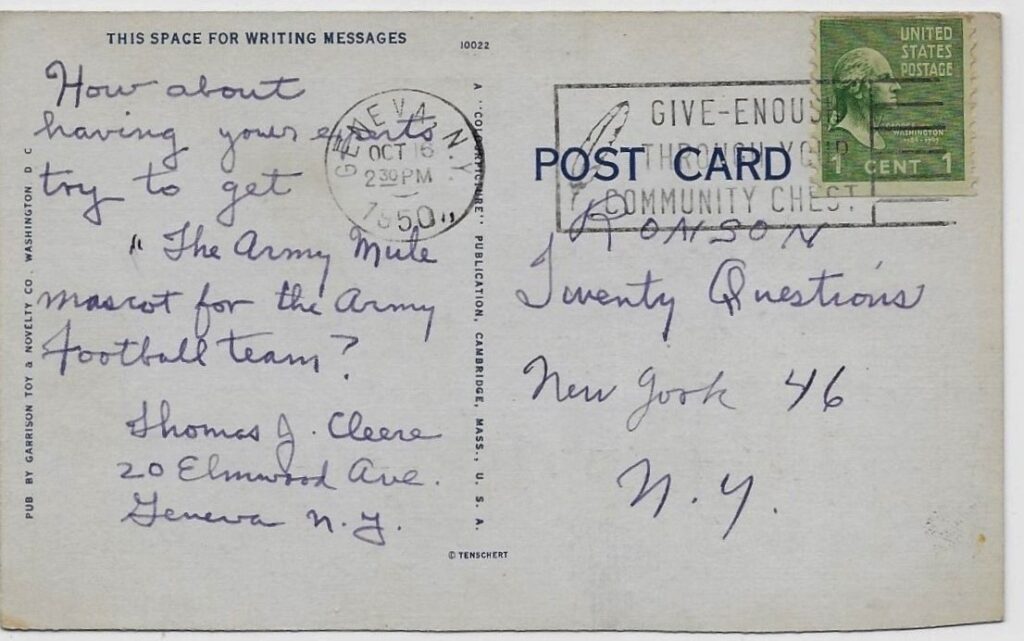 THIS SPACE FOR WRITING MESSAGES
10022
How about
having your experts
try to get
"The Army Mule
mascot for the Army
football team?
Thomas J. Cleere
20 Elmwood Ave.
Geneva N.Y.
PUB BY GARRISON TOY & NOVELTY CO. WASHINGTON D C
GENEVA, N.Y.
OCT 16
2 30 PM
1950
A "COLORPICTURE" PUBLICATION, CAMBRIDGE, MASS., U. S. A.
© TENSCHERT
GIVE-ENOUGH
THROUGH YOUR
COMMUNITY CHEST
POST CARD
UNITED
STATES
POSTAGE
GEORGE WASHINGTON
1 CENT 1
RONSON
Twenty Questions
New York 46
N.Y.